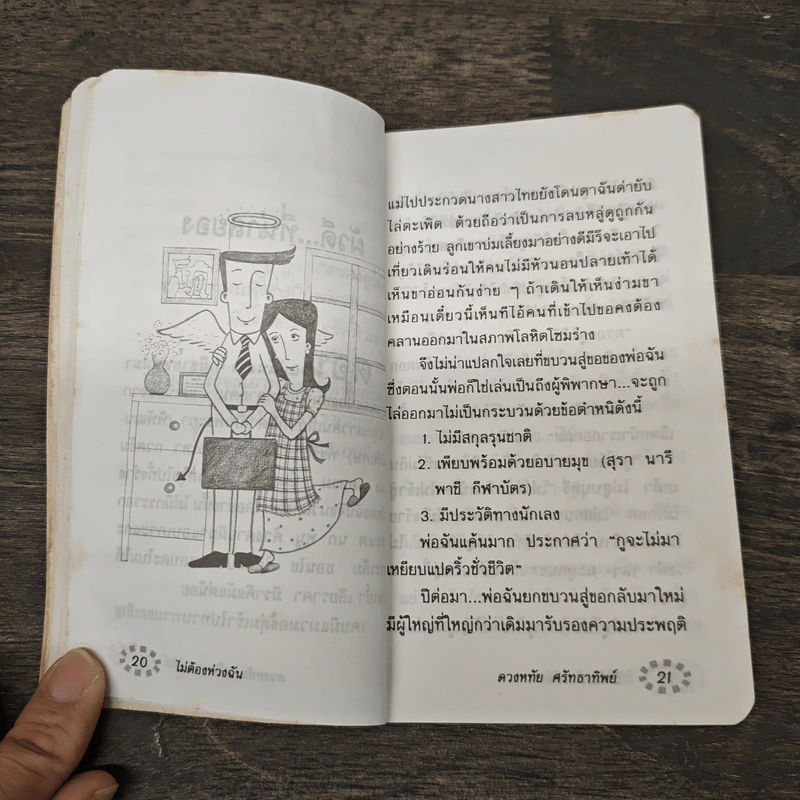 20 ไม่ต้องห่วงฉัน
แม่ไปประกวดนางสาวไทยยังโดนตาฉันด่ายับ
ไล่ตะเพิด ด้วยถือว่าเป็นการลบหลู่ดูถูกกัน
อย่างร้าย ลูกเขาบ่มเลี้ยงมาอย่างดีมีรึจะเอาไป
เที่ยวเดินร่อนให้คนไม่มีหัวนอนปลายเท้าได้
เห็นขาอ่อนกันง่าย ๆ ถ้าเดินให้เห็นง่ามขา
เหมือนเดี๋ยวนี้เห็นทีไอ้คนที่เข้าไปขอคงต้อง
คลานออกมาในสภาพโลหิตโซมร่าง
จึงไม่น่าแปลกใจเลยที่ขบวนสู่ขอของพ่อฉัน
ซึ่งตอนนั้นพ่อก็ใช่เล่นเป็นถึงผู้พิพากษา...จะถูก
ไล่ออกมาไม่เป็นกระบวนด้วยข้อตำหนิดังนี้
1. ไม่มีสกุลรุนชาติ
2. เพียบพร้อมด้วยอบายมุข (สุรา นารี
พาชี กีฬาบัตร)
3. มีประวัติทางนักเลง
พ่อฉันแค้นมาก ประกาศว่า “กูจะไม่มา
เหยียบแปดริ้วชั่วชีวิต”
ปีต่อมา...พ่อฉันยกขบวนสู่ขอกลับมาใหม่
มีผู้ใหญ่ที่ใหญ่กว่าเดิมมารับรองความประพฤติ
ดวงหทัย ศรัทธาทิพย์ 21